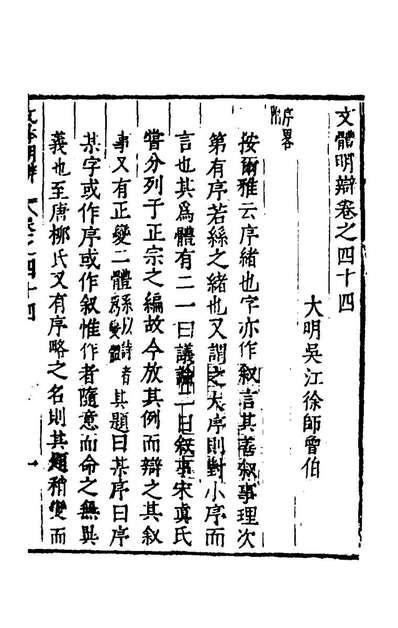 文體明辯卷之四十四
大明吳江徐師曾伯
序畧附
按爾雅云序緒也字亦作叙言其善叙事理次
第有序若絲之緒也又謂之大序則對小序而
言也其爲體有二一曰議論二曰叙事宋真氏
嘗分列于正宗之編故今放其例而辯之其叙
事又有正變二體係以詩者其題曰某序曰序
某字或作序或作叙惟作者隨意而命之無異
義也至唐柳氏又有序略之名則其題稍變而
文體明辯 卷之四十四 一